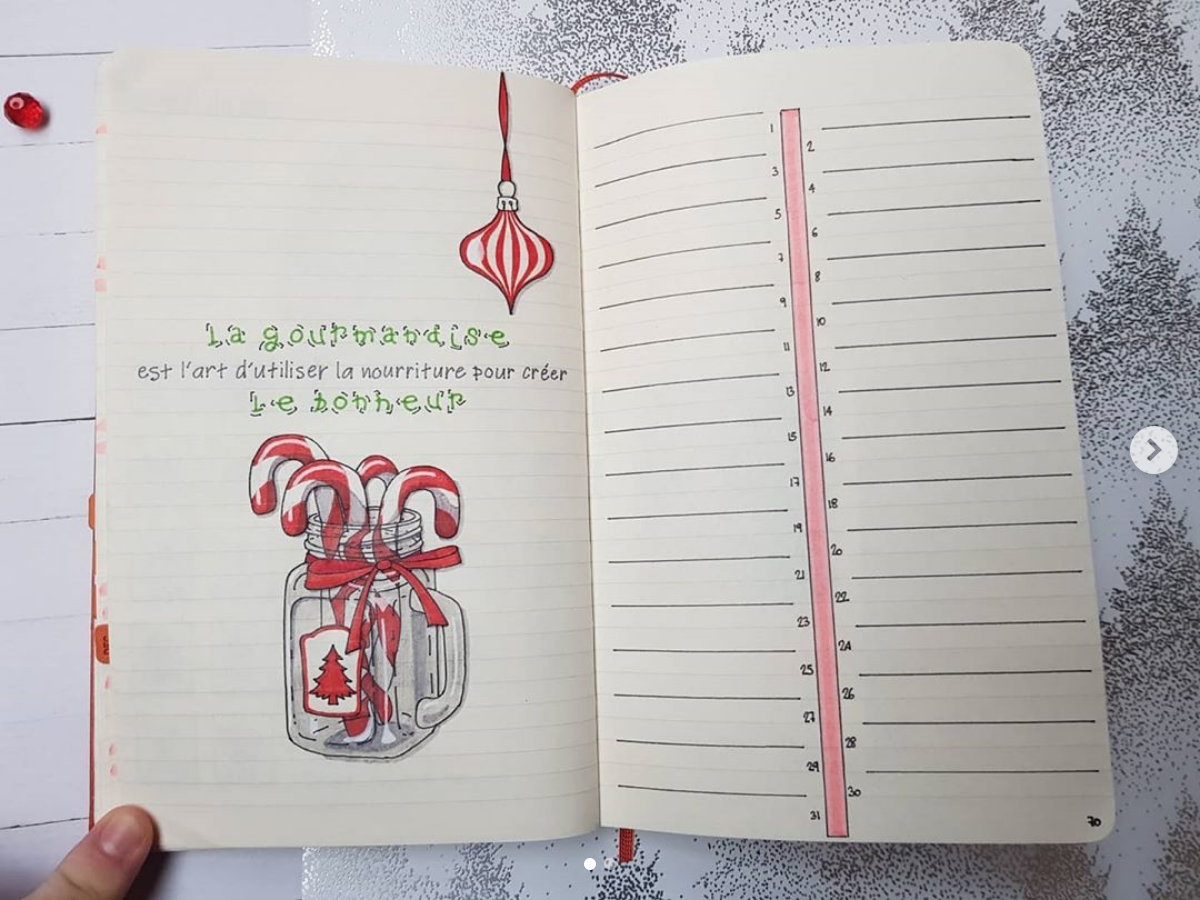 La gourmandise
est l'art d'utiliser la nourriture pour créer
Le bonheur
1
2
3
4
5
6
7
8
9
10
11
12
13
14
15
16
17
18
19
20
21
22
23
24
25
26
27
28
29
30
31
70